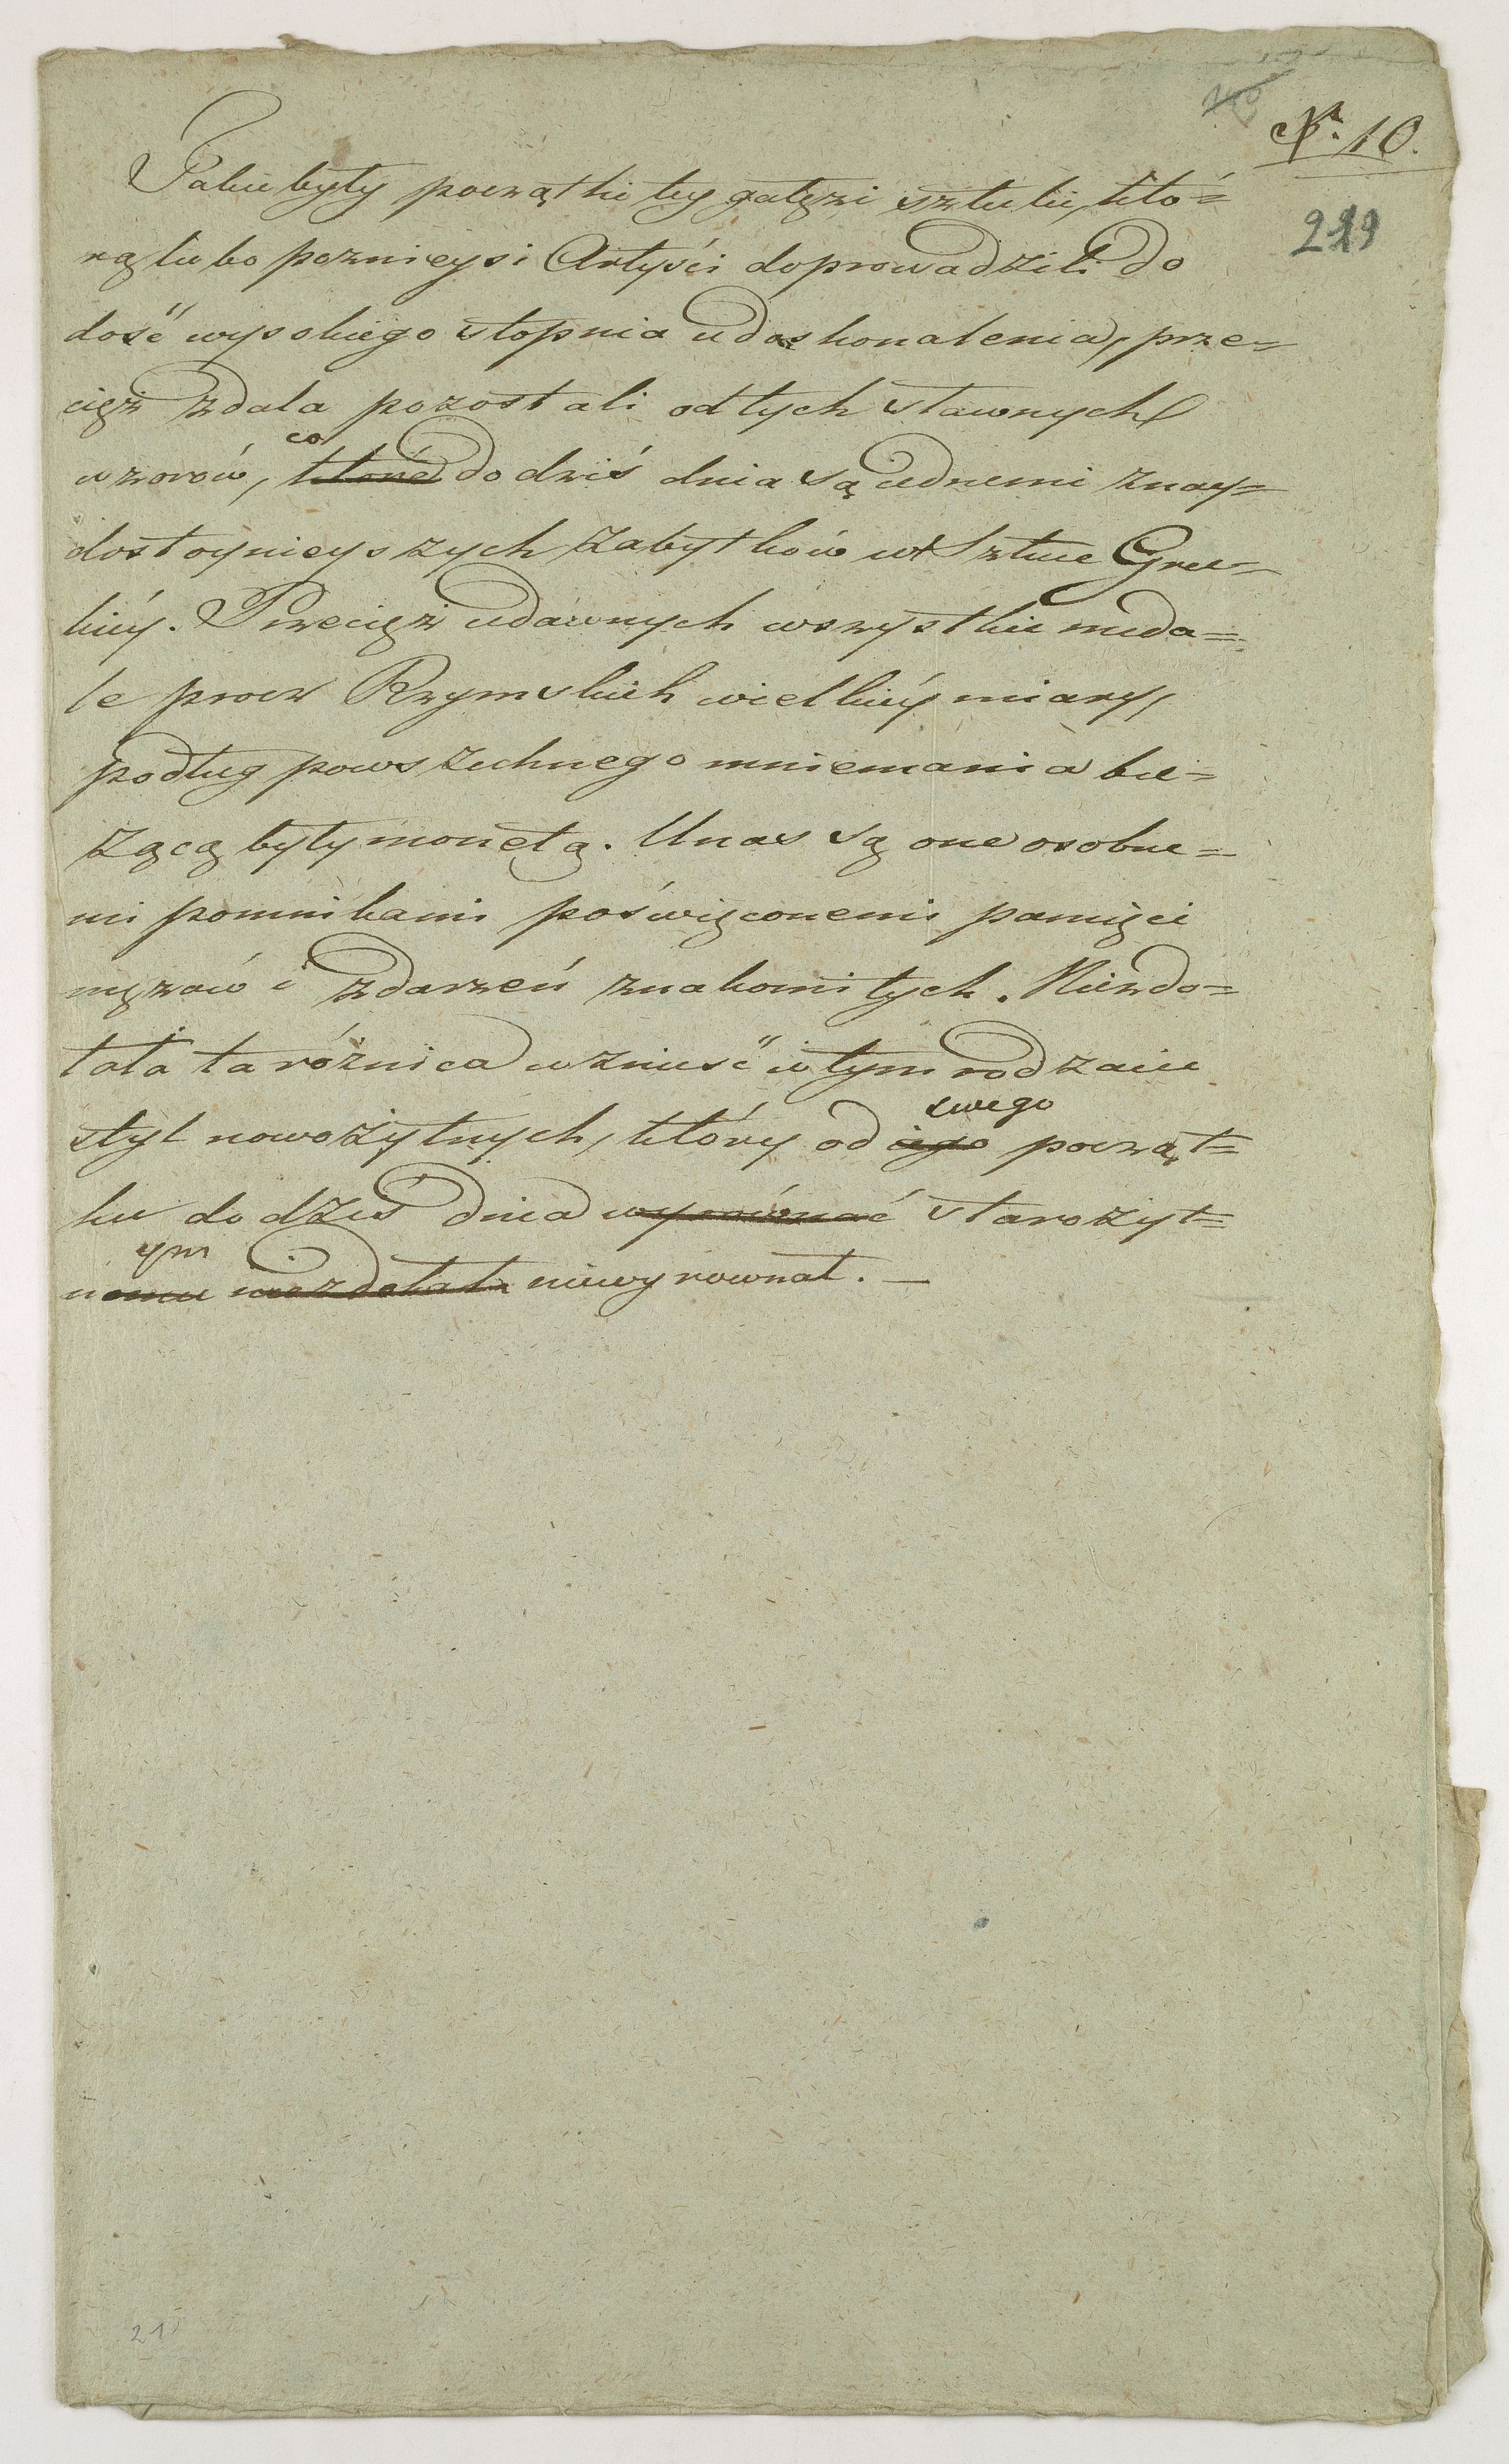 Nr. 10.
219
Takie były początki tey gałęzi sztuki, któ=
rą lubo poznieysi Artyści doprowadzili do
dość wysokiego stopnia udoskonalenia, prze=
cięż zdala pozostali od tych sławnych
co
wzorów, które do dziś dnia są iednemi z nay=
dostoynieyszych zabytków w Sztuce Grec=
kiéy. Przecięż u dawnych wszystkie meda=
le procz Rzymskich wielkiéy miary,
podług powszechnego mniemania bie=
żącą były monetą. U nas są one osobne=
mi pomnikami poświęconemi pamięci
mężów i zdarzeń znakomitych. Niezdo=
łała ta różnica wznieść w tym rodzaiu
swego
styl nowożytnych, który od iego począt=
ku do dziś dnia wyrównać starożyt=
ym
nemu niezdołał niewyrownał. —
21